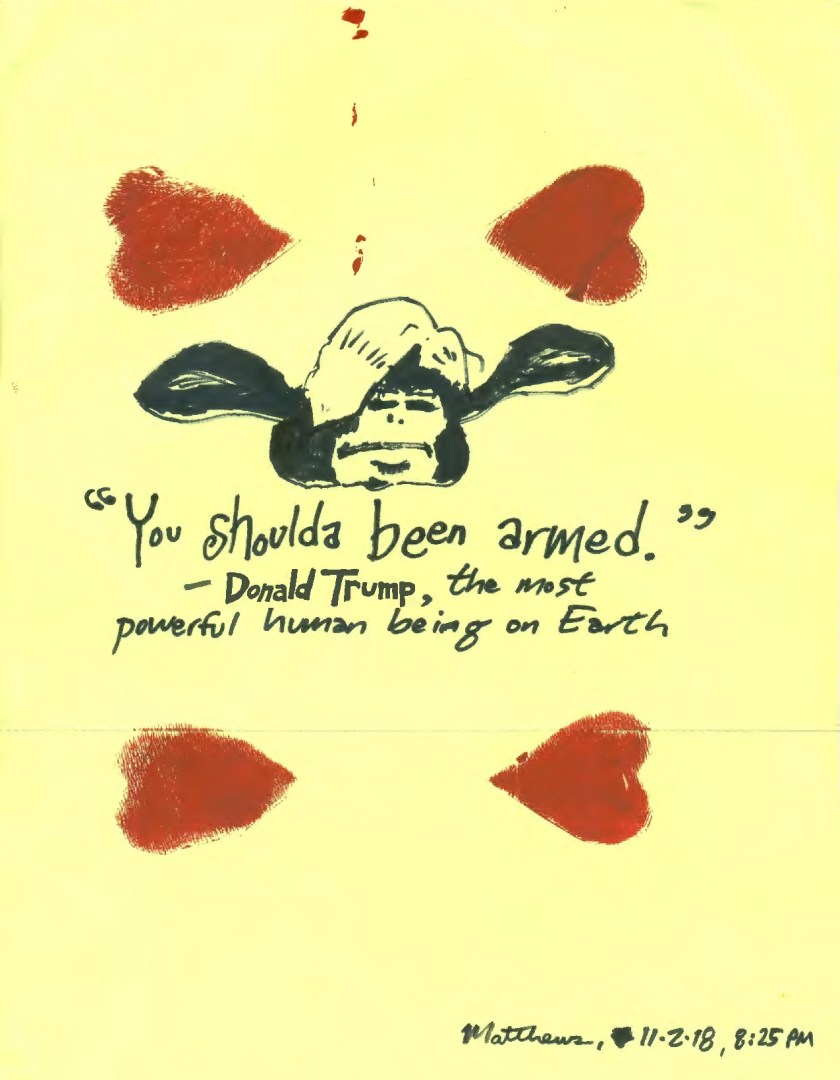 “You shoulda been armed.”
— Donald Trump, the most
powerful human being on Earth
Matthews, 11-2-18, 8:25 PM